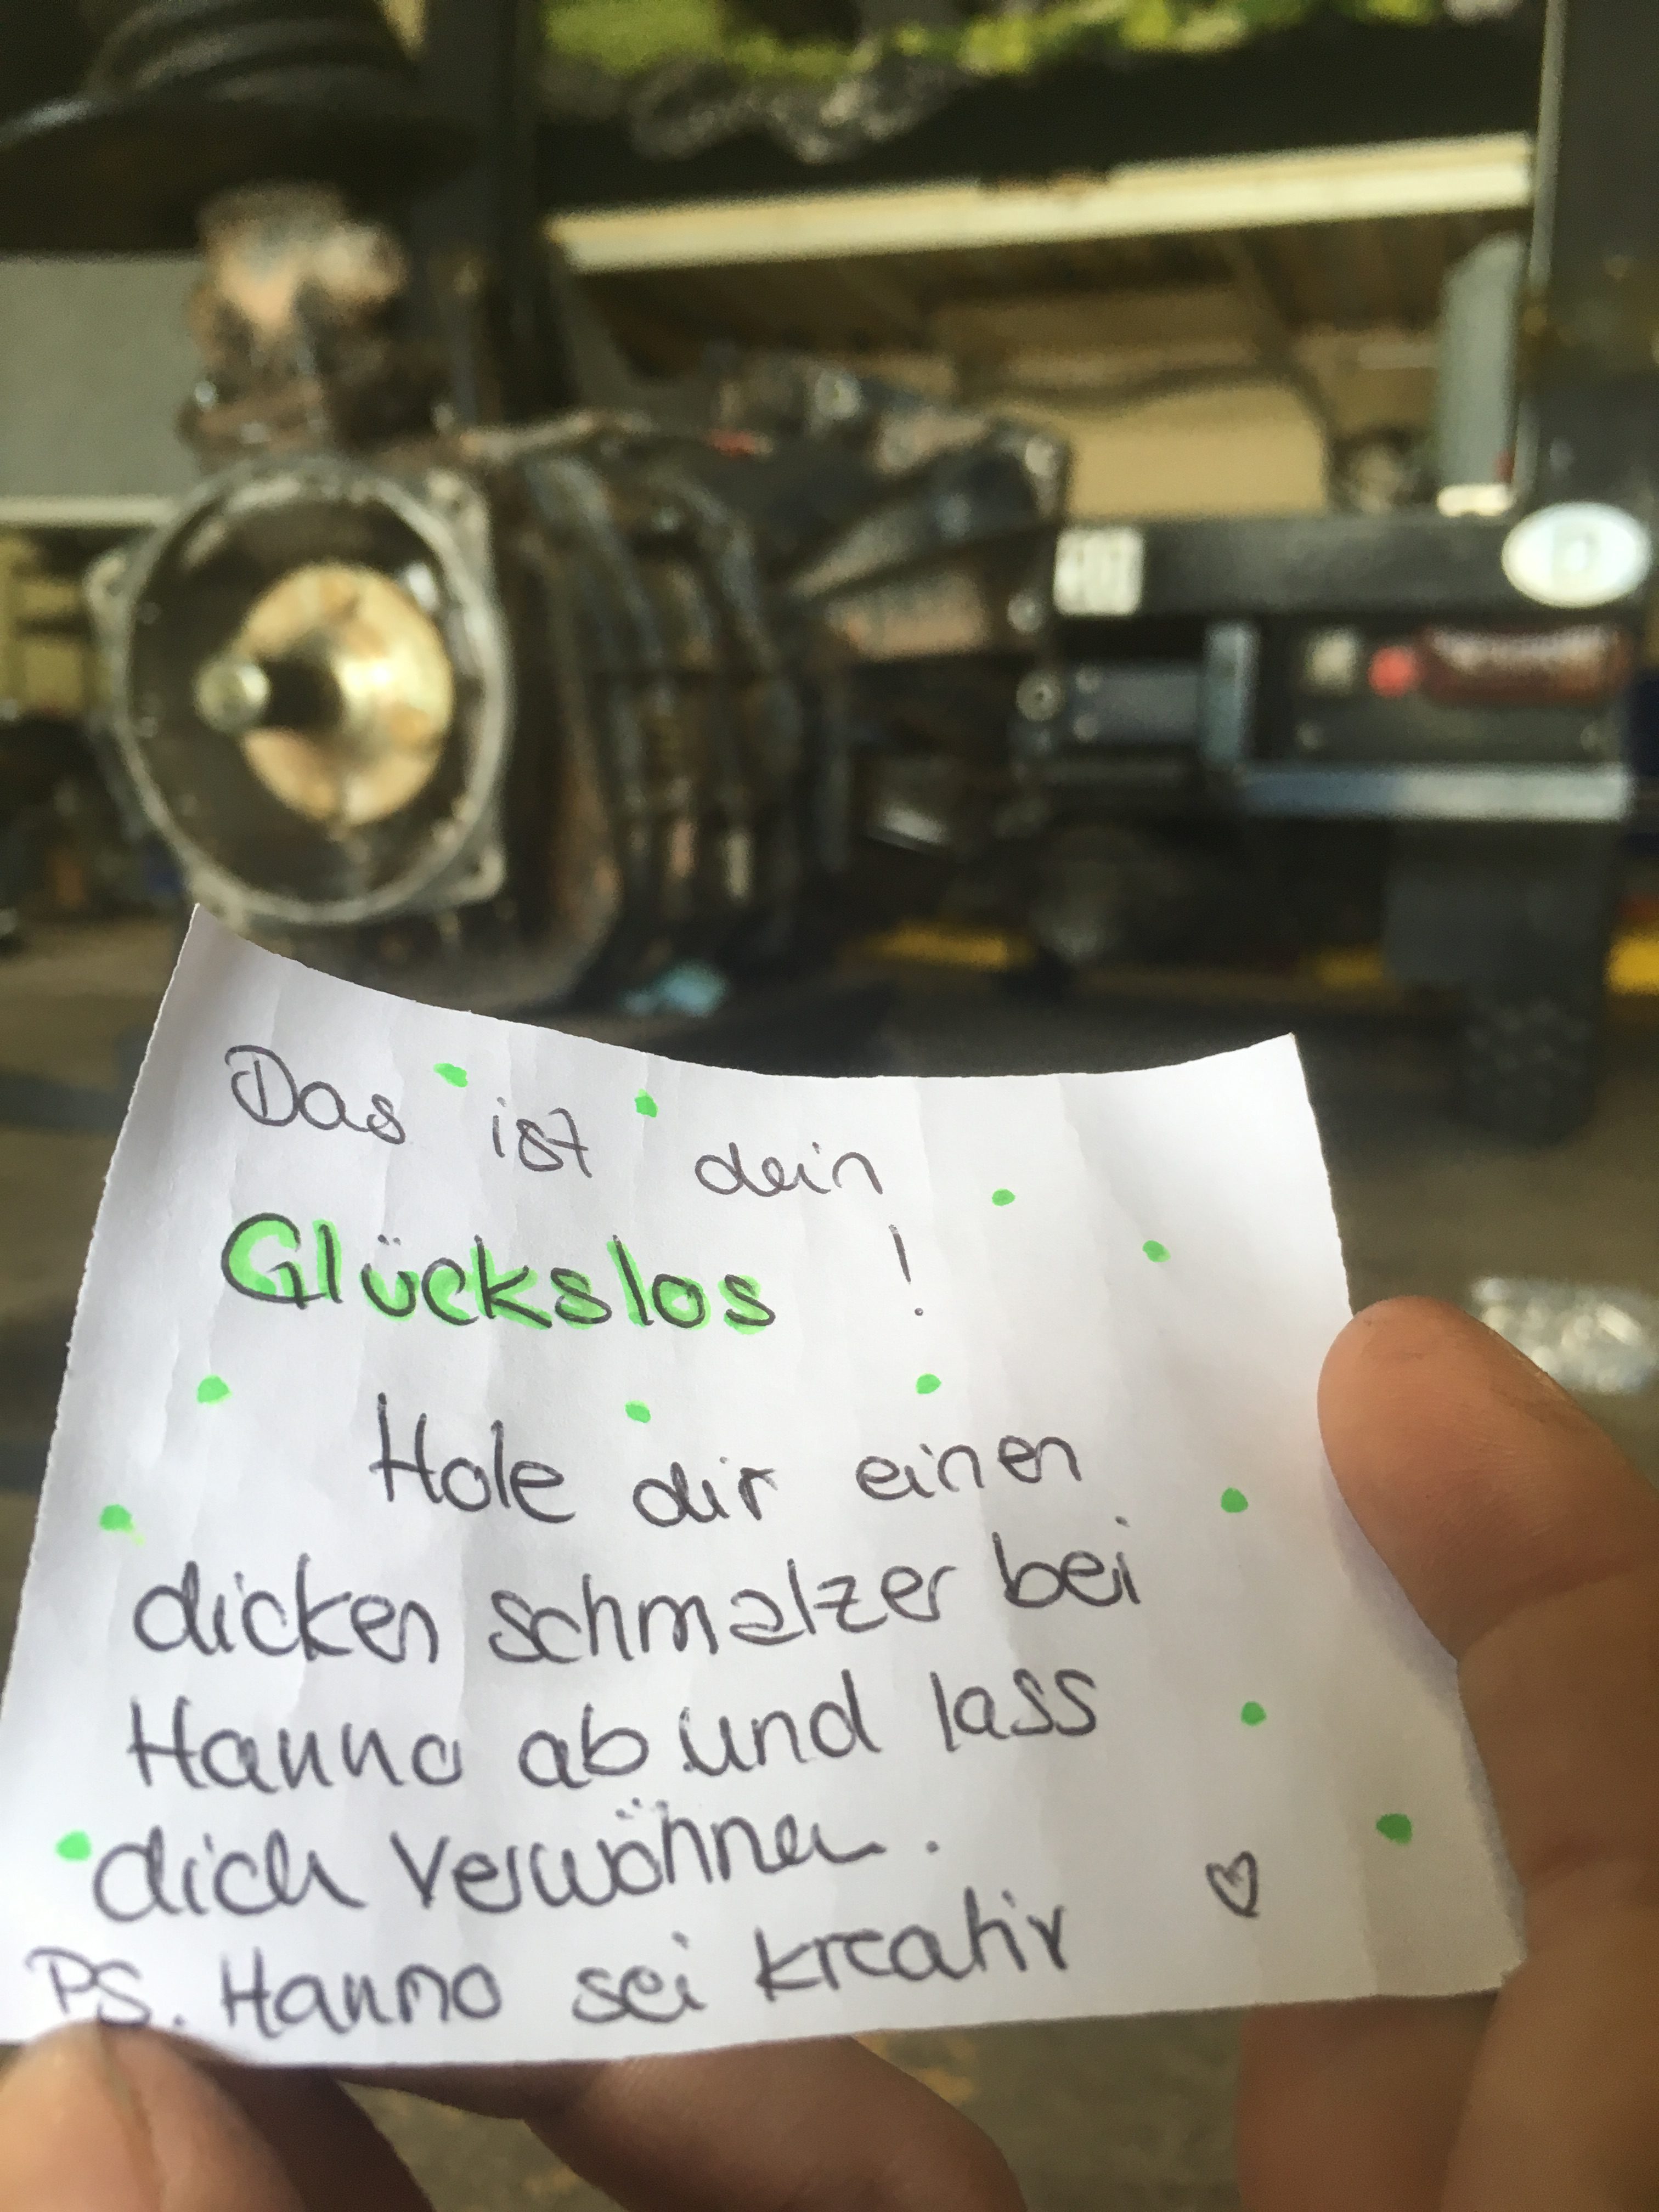 Das ist dein
Glückslos !
Hole dir einen
dicken schmalzer bei
Hanno ab und lass
dich verwöhnen.
PS. Hanno sei kreativ